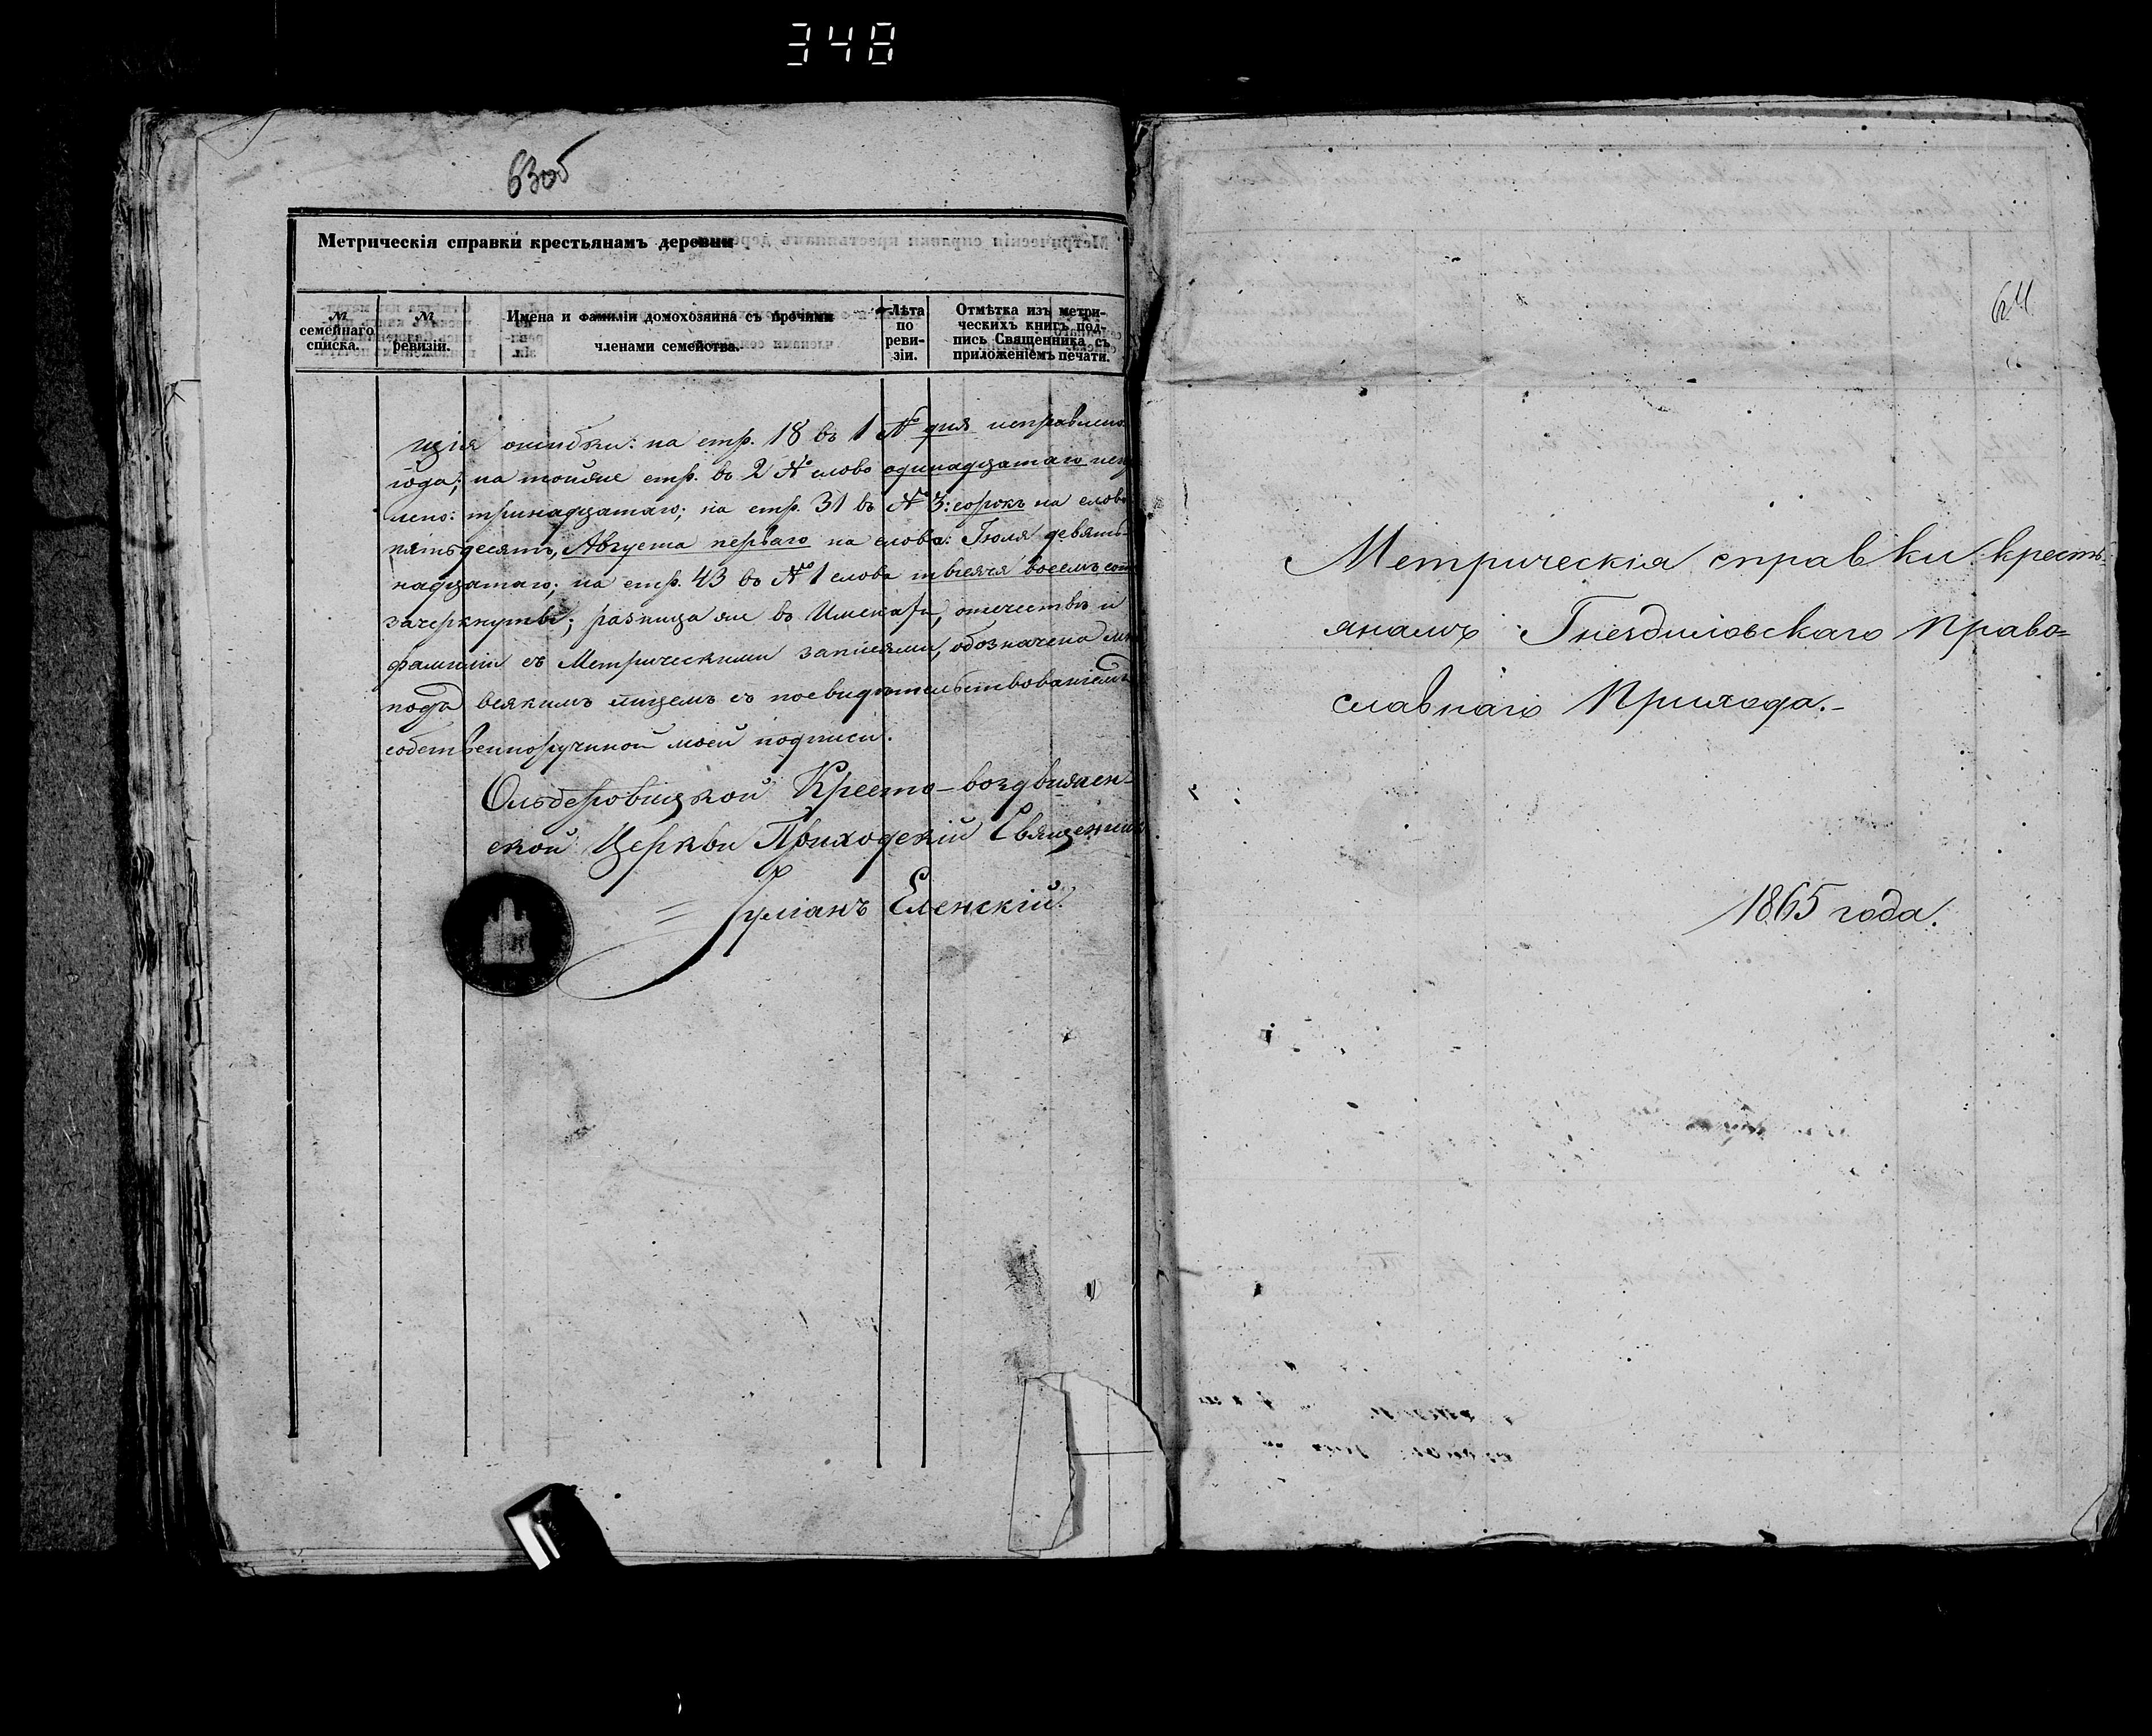 348
63об
Метрическія справки крестьянамъ деревни
№ семейнаго списка.
№ ревизіи.
Имена и фамиліи домохозяина съ прочими членами семейства.
Лѣта по реви-зіи.
Отмѣтка изъ метри-ческихъ книгъ под-пись Священника съ приложеніемъ печати.
щія ошибки: на стр. 18 въ 1 № дня исправлено
года; на тойже стр. въ 2 № слово одинадцатаго исп
лено: тринадцатаго; на стр. 31 въ № 3: сорокъ на слово
пятьдесятъ, Августа перваго на слова: Іюля девять-
надцатаго; на стр. 43 въ № 1 слова тысяча восемьсот
зачеркнуты; разница же въ Именахъ, отчествѣ и
фамиліи съ Метрическими записями, обозначена
подъ всякимъ лицемъ съ посвидѣтельствованіемъ
собственноручной моей подписи.
Ольберовицкой Кресто-воздвижен-
ской Церкви Приходскій Священник
Іуліанъ Еленскій.
64
Метрическія справки кресть-
янамъ Гнездиловскаго Право=
славнаго Прихода.-
1865 года.